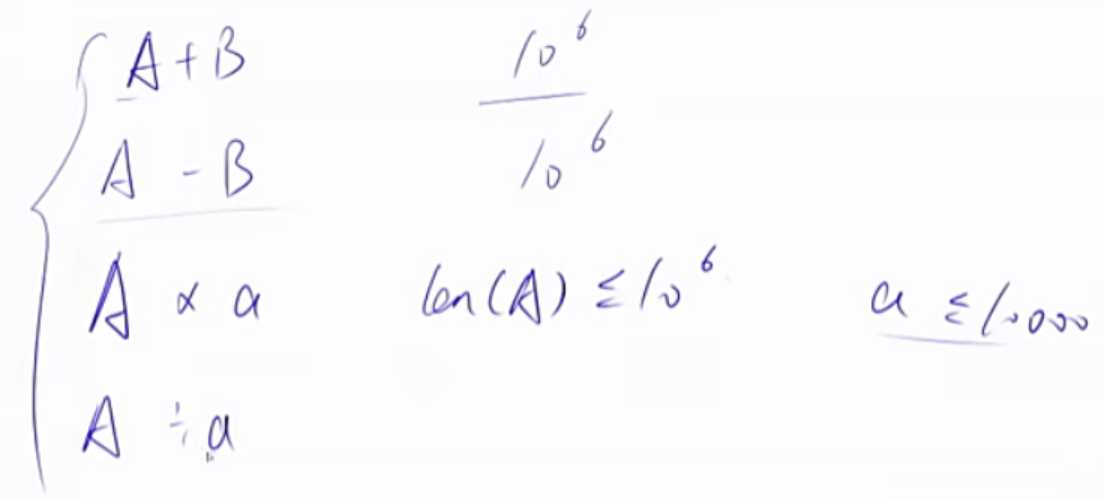 A+B 10⁶
A - B 10⁶
A × a len(A) ≤ 10⁶ a ≤ 10000
A ÷ a